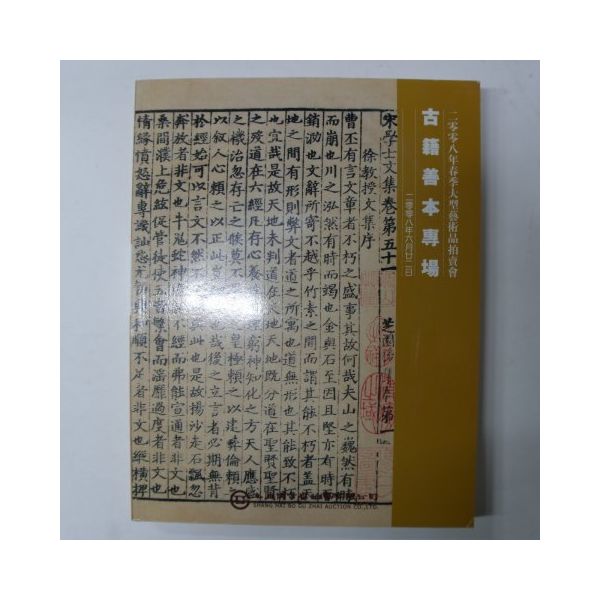 二零零八年春季大型藝術品拍賣會
古籍善本專場
二零零八年六月廿二日
宋學士文集卷第五十一
芝園後集卷第一
徐教授文集序
曹丕有言文章者不朽之盛事其故何哉夫山之巍然有時
而崩也川之泓然有時而竭也金與石至固且堅亦有時而
銷泐也文辭所寄不越乎竹素之間而謂其能不朽者蓋天
地之間有形則弊文者道之所寓也道無形也其能致不朽
也宜哉是故天地未判道在天地天地既分道在聖賢聖賢
之歿道在六經凡存心養性之理窮神知化之方天人應感
之機治忽存亡之候莫不畢書之皇極賴之以建彝倫賴之
以叙人心賴之以正此豈細故也哉後之立言者必期無背
於經始可以言文不然不足以與此也是故揚沙走石飄忽
奔放者非文也牛鬼蛇神佹誕不經而弗能宣通者非文也
桑間濮上危絃促管徒使五音繁會而淫靡過度者非文也
情緣憤怒辭專譏訕怨尤勃興和順不足者非文也縱橫捭
SHANG HAI BO GU ZHAI AUCTION CO.,LTD.